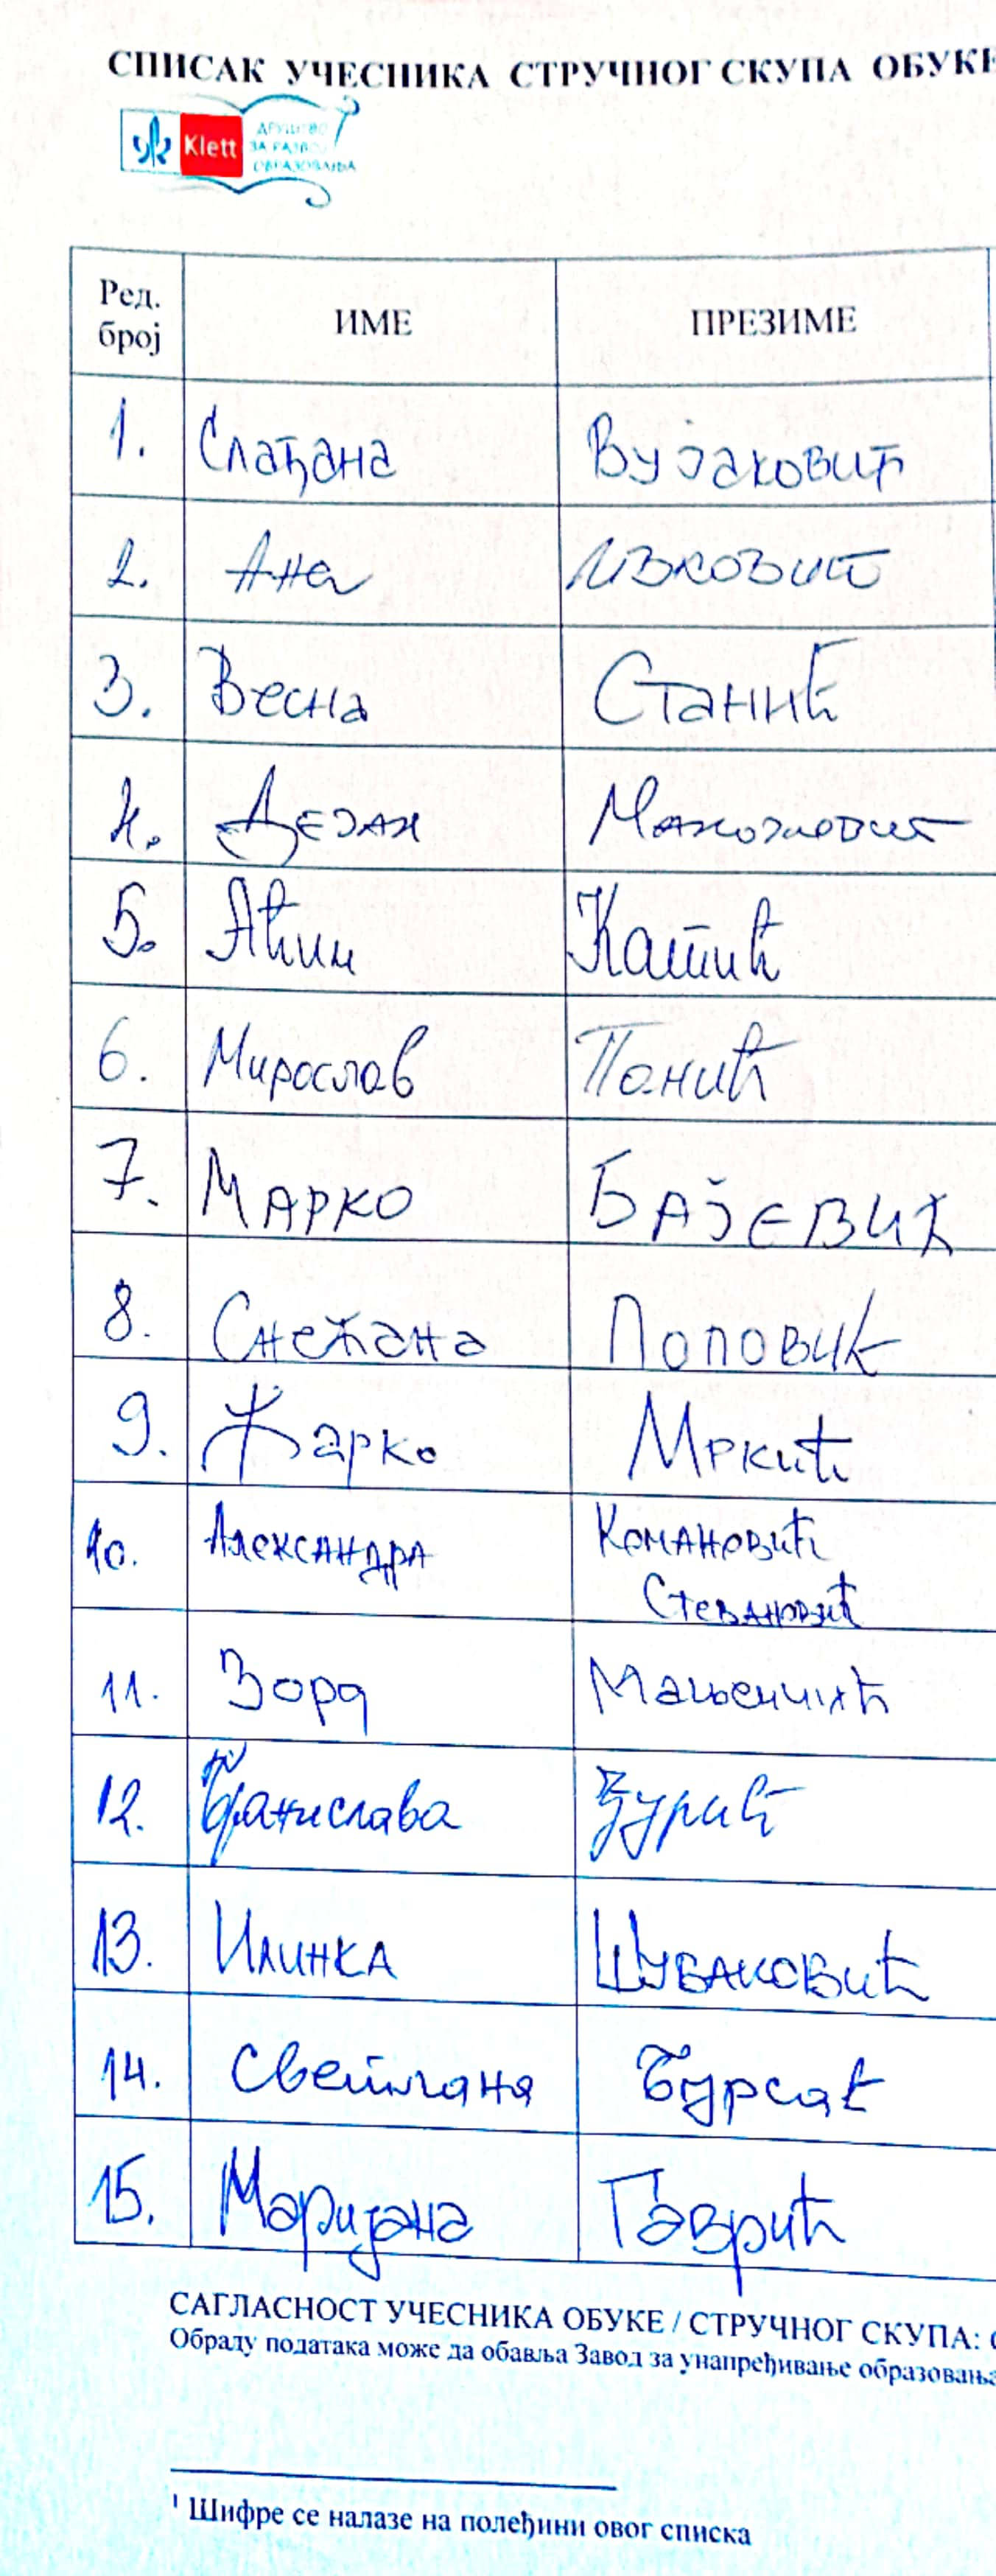 СПИСАК УЧЕСНИКА СТРУЧНОГ СКУПА ОБУКЕ
Klett
ДРУШТВО
ЗА РАЗВОЈ
ОБРАЗОВАЊА
Ред. број ИМЕ ПРЕЗИМЕ
1. Слађана Вујаковић
2. Ана Ивковић
3. Весна Станић
4. Дејан
5. Аћим Катић
6. Мирослав Панић
7. МАРКО БАЈЕВИЋ
8. Снежана Поповић
9. Жарко Мркић
10. Александра Комановић
Стевановић
11. Зора
12. Бранислава Ђурић
13. Илинка Цуваковић
14. Светлана Бурсаћ
15. Маријана Гаврић
САГЛАСНОСТ УЧЕСНИКА ОБУКЕ / СТРУЧНОГ СКУПА:
Обраду података може да обавља Завод за унапређивање образовања
1 Шифре се налазе на полеђини овог списка